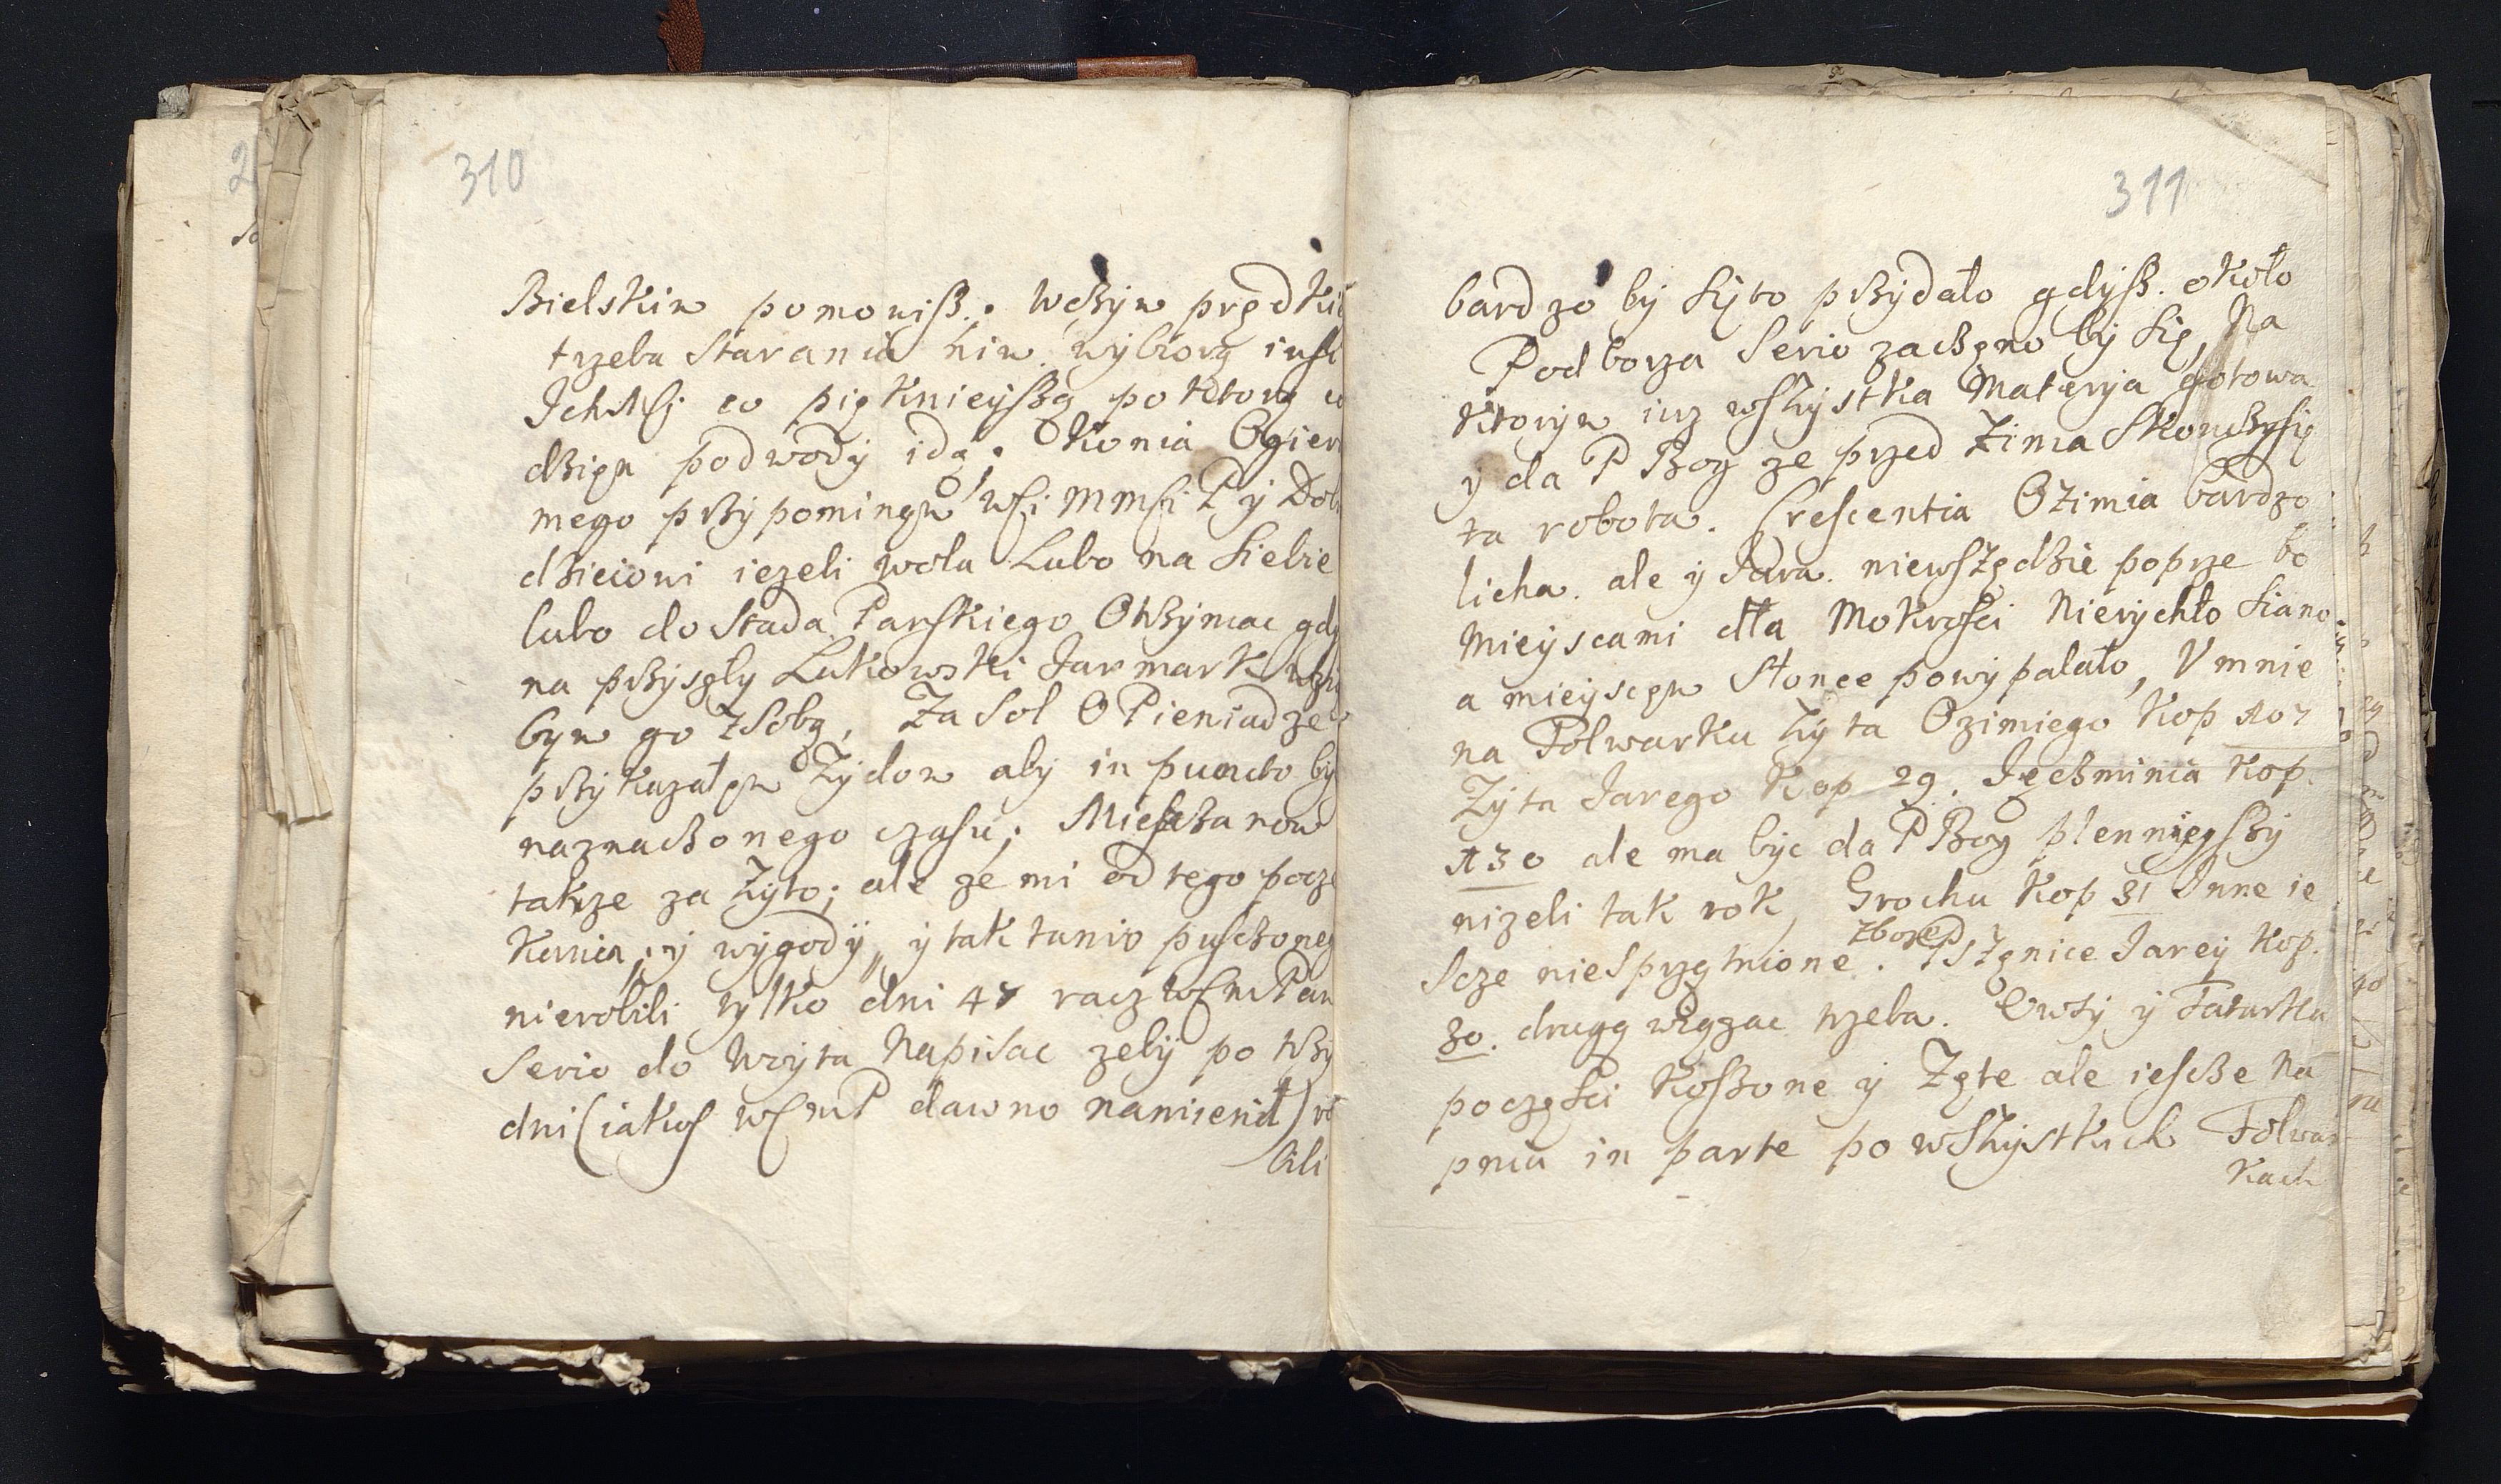 310
Bielskim pomowisz. wczym prędki
trzeba starania nim wybiorą
Ichmsj co pięknieyszą po ktorą
dzien podwody idą. Konia Ogier
mego przypominęm Wsi MMsi P y Dob
dzieiowi iezeli wola Lubo na siebie
lubo do stada Panskiego Otrzymac gdy
na przyszly Lukowski Jarmark
bym go z soba, Za sol O Pieniadze
przykazałem Zydom aby in puncto by
naznaczonego czasu; Mieszczanow
takze za Zyto; ale ze mi od tego
y wygody, y tak tanio pusczoneg
nierobili tylko dni 48 racz WsmPan
serio do Woyta Napisac zeby po trzy
dni (iakos WsmP dawno namienił) ro
bili
311
bardzo by się to przydało gdysz. około
Podborza serio zaczęno by się, Na
ktorym iuz wszystka Materyja gotowa
y da P Bog ze przed Zima Skonczysię
ta robota. Crescentia Ozimia bardzo
licha. ale y Jara. niewszędzie poprze bo
Mieyscami dla Mokrosci Nierychło siano
a mieyscem Słonce powypalało, V mnie
na Folwarku Zyta Ozimiego Kop 107
Zyta Jarego Kop 29. Jęczminia Kop.
130 ale ma byc da P Bog plennieyszy
nizeli tak rok, Grochu Kop 31 Inne ie
scze niesprzętnione. zboze Pszęnice Jarey Kop.
30. drugą wiązac trzeba. Owsy y Tatarka
poczęsci Koszone y Zęte ale iescze Na
pniu in parte po wszystkich Folwar
kach